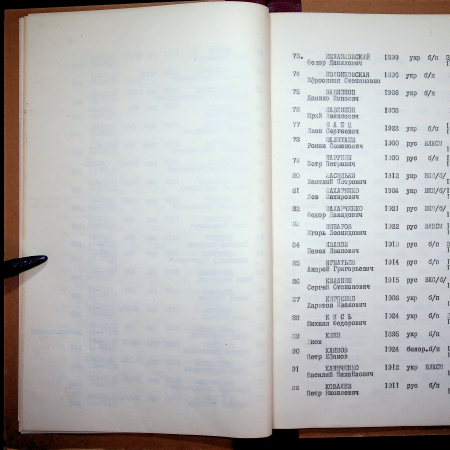 73. 1899 укр б/п
Федор Данилович
74 1896 укр б/п
Ефросиния Степановна
75 1906 укр б/п
Данило Иванович
76 1908
Юрий Данилович
77 З А Е Ц 1923 укр б/п
Иван Сергеевич
78 1900 рус ВЛКСМ
Роман Семенович
79 ЗАРУБИН 1900 рус б/п
Петр Петрович
80 ЗАСЯДЬКО 1912 укр ВКП/б/
Василий Петрович
81 ЗАХАРЧЕНКО 1904 укр ВКП/б/
Лев Захарович
82 ЗАХАРЧЕНКО 1921 рус б/п
Федор Давидович
83 1922 рус ВЛКСМ
Игорь Леонидович
84 ИВАНОВ рус б/п
Павел Иванович
85 ИГНАТЬЕВ 1914 рус б/п
Андрей Григорьевич
86 1915 рус ВКП/б/
Сергей Степанович
87 КИРИЕНКО 1906 укр б/п
Харитон Иванович
88 К И С Ь 1924 укр б/п
Михаил Федорович
89 1895 укр б/п
90 КЛИМОВ 1924 белор. б/п
Петр Ефимов
91 КЛИМЧЕНКО 1912 укр ВЛКСМ
Василий Михайлович
92 КОВАЛЕВ 1911 рус б/п
Петр Яковлевич